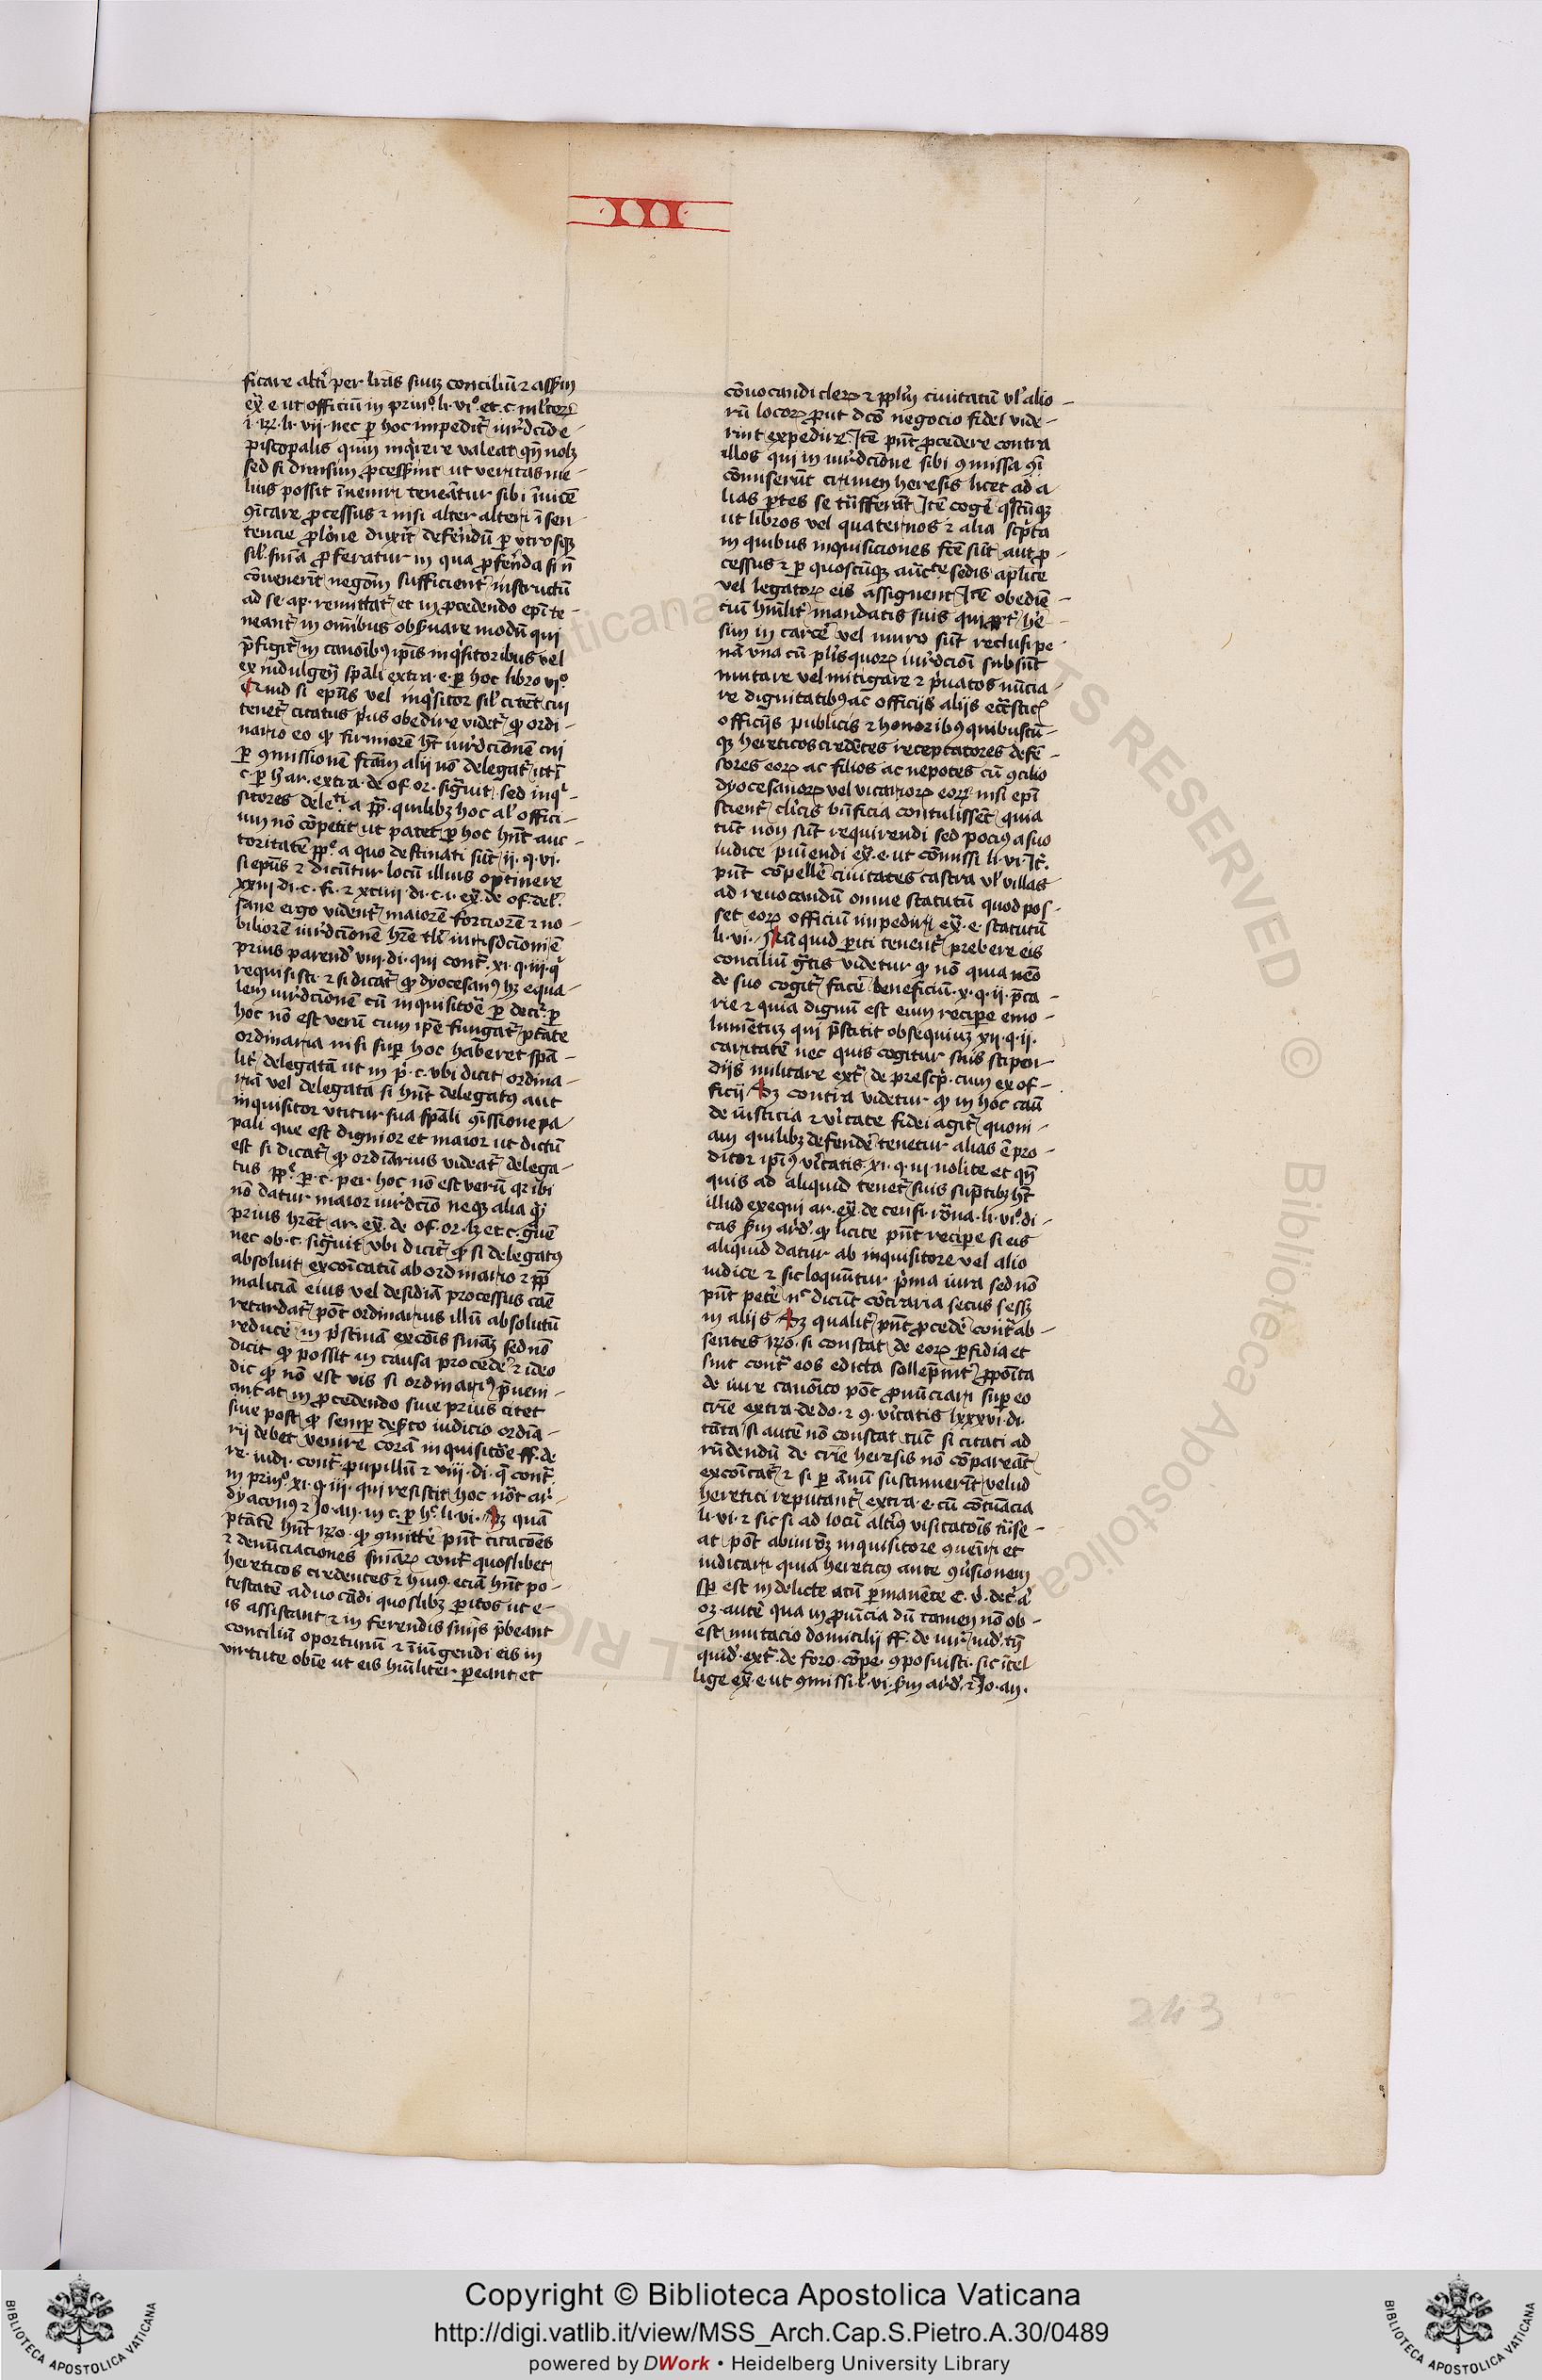 III
ficare alt̄i per lr̄as suuꝫ conciliū ⁊ assēm
ex̄ e ut officiū in prin̊ li vi̊ et c
i li vii nec ꝑ hoc impedit̄ iur̄dcīo e
piscopalis quin inq̄rere valeat
sed si diuisim ꝓcesserint ut veritas me
lius possit īneniri teneātur sibi īuicē
ꝯīcare ꝓcessus ⁊ nisi alter alteri ī sen
tencie ꝓlōne duxit̄ defendū ꝑ vtrosqꝫ
sil̄ sn̄ia ꝓferatur in qua ꝓferēda si nō
cōuenerīt negom̄ sufficient̄ instructū
ad se ap. remittat̄ et in ꝓcedendo ep̄i te
neant̄ in om̄ibus obẜuare modū qui
p̄figit̄ in canoībꝰ ip̄is inq̄sitoribus vel
ex indulgen̄ sp̄ali extra e ꝑ hoc libro vi̊
Quid si ep̄us vel inq̄sitor sil̄ citēt cui
tenet̄ citatus p̄us obedire videt̄ ꝙ ordi
nario eo ꝙ firmiorē hēt iur̄dcīonē cui
ꝑ ꝯmissionē fc̄am alij nō delegat̄
c ꝑ h̄ ar. extra de of. or. sig̅uit sed inq̄
sitores dele a pp̄ quilibꝫ hoc al̄ offici
um nō cōpetit ut patet ꝑ hoc hn̄t auc
toritatē pp̄e a quo destinati sūt ij q vi
si ep̄us ⁊ dicūtur locū illius optinere
xxiij di c fi ⁊ xciiij di c i ex̄ de of. del̄
sane ergo vident̄ maiorē forciorē ⁊ no
biliorē iur̄dcīonē hr̄e
prius parend̄ viij di qui cont̄ xi q iij q̄
requisisti ⁊ si dicat̄ ꝙ dyocesanꝰ hꝫ equa
lem iur̄dcīonē cū inquisitor̄e
hoc nō est verū cum ip̄e fungat̄ ptāte
ordinaria nisi suꝑ hoc haberet spā
lit̄ delegatā ut in p̄ c vbi dicit ordina
riā vel delegatā si hn̄t delegatꝰ aut
inquisitor vtitur sua sp̄ali ꝯissione pa
pali que est dignior et maior ut dictū
est si dicat̄ ꝙ ordīarius videat̄ delega
tus pp̄e ꝑ c ꝑ hoc nō est verū qr ibi
nō datur maior iur̄dcīo neqꝫ alia
prius hr̄et ar. ex̄ de of. or.
nec ob c sig̅uit vbi dicit̄ ꝙ si delegatꝰ
absoluit exco̅icatū ab ordinario ⁊ pp̄
maliciā eius vel desidiā processus cāe
retardat̄ pōt ordinarius illū absolutū
reducē in p̄stinā excōis sn̄iaꝫ sed nō
dicit ꝙ possit in causa procedē ⁊ ideo
dic ꝙ nō est vis si ordinariꝰ p̄ueni
at in ꝓcedendo siue prius citet
siue post ꝙ semꝑ iudicio ordīa
rij debet venire corā inquisitōe ff. de
re iudi cont̄ pupillū ⁊ viij di q̄ cont̄
in prin̊ xi q iij qui resistit hoc nōt
dyaconꝰ ⁊ Jo. an. in c ꝑ h̊ li vi Sꝫ quā
ptātē hn̄t ꝙ ꝯmittē pn̄t citacōes
⁊ denūciaciones sn̄iaꝝ cont̄ quoslibet
hereticos credentes ⁊ huiꝰ eciā hn̄t po
testatē aduocādi quoslibꝫ ꝑitos ut e
is assistant ⁊ in ferendis sn̄ijs p̄beant
conciliū oportunū ⁊ īiūgendi eis in
virtute obīe ut eis hūiliter pareant et
cōuocandi cleꝝ ⁊ ppl̄m ciuitatū vl̄ alio
rū locoꝝ ꝓut dcō negocio fidei vide
rint expedire Itē pn̄t ꝓcedere contra
illos qui in iur̄dcīone sibi ꝯmissa
cōmiserūt crimen heresis licet ad a
lias ꝑtes se trāsferāt Itē cogē qscūqꝫ
ut libros vel quaternos ⁊ alia scp̄ta
in quibus inquisiciones fc̄e sūt aut ꝓ
cessus ⁊ ꝑ quoscūqꝫ auct̄e sedis aplice
vel legatoꝝ eis assignent Itē obediē
cium hūilit̄ mandatis suis qui ꝓpt̄ he
sim in carcē vel muro sūt reclusi pe
nā vna cū pl̄is quoꝝ iur̄dcīoi subsūt
mutare vel mitigare ⁊ p̄uatos nūcia
re dignitatibꝰ ac officijs alijs ecc̄sticis
officijs publicis ⁊ honoribꝰ quibuscū
qꝫ hereticos credētes receptatores defē
sores eoꝝ ac filios ac nepotes cū ꝯcilio
dyocesanoꝝ vel vicarioꝝ eoꝝ nisi ep̄i
scient̄ cl̄icis bn̄ficia contulissēt quia
tūc non sūt requirendi sed pociꝰ a suo
iudice puniendi ex̄ e ut cōmissi li vi It̄
pn̄t cōpellē ciuitates castra vl̄ villas
ad reuocandū omne statutū quod pos
set eoꝝ officiū impediri ex̄ e statutū
li vi Nūquid ꝑiti tenent̄ prebere eis
conciliū gr̄tis videtur ꝙ nō quia nēo
de suo cogit̄ facē beneficiū x q ij p̄ca
rie ⁊ quia dignū est eum recipe emo
lumētuꝫ qui p̄stitit obsequiuꝫ xij q ij
caritatē nec quis cogitur suis stipen
dijs militare ext̄ de prescp̄ cum ex of
ficij Sꝫ contra videtur ꝙ in hoc cāu
de iusticia ⁊ v̄itate fidei agit̄ quoni
am quilibꝫ defendē tenetur alias ē pro
ditor ip̄iꝰ v̄itatis xi q iij nolite et qn̄
quis ad aliquid tenet̄ suis sūptibꝫ
illud exequi ar. ex̄ de censi. rōana li vi̊ di
cas ẜm ar̄d ꝙ licite pn̄t recipe si eis
aliquid datur ab inquisitore vel alio
iudice ⁊ sic loquūtur p̄ma iura sed nō
pn̄t petē nec dicūt cōtraria secus
in alijs Sꝫ qualit̄ pn̄t ꝓcedē cont̄ ab
sentes si constat de eoꝝ ꝑfidia et
sint cont̄ eos edicta sollēpnit̄ ꝓpōita
de iure canoīco pōt ꝓnūciari suꝑ eo
crīe extra de do. ⁊ ꝯ. v̄itatis lxxxvi di
tāta si autē nō constat tūc si citati ad
rn̄dendū de crīe heresis nō cōpareāt
excoīcat̄ ⁊ si ꝑ ānū sustinuerīt velud
heretici reputant̄ extra e cū cōtūacia
li vi ⁊ sic si ad locū altiꝰ visitatōis trāsfe
at pōt ab inquisitore ꝯueniri et
iudicari quia hereticꝰ ante ꝯūsionem
sp̄ est in delicte
autē qua in ꝓuīcia dū tamen nō ob
est mutacio domicilij ff. de iur̄ iud̄
quid̄ ext̄ de foro cōpe ꝯposuisti sic ītel
lige ex̄ e ut ꝯmissi li vi ẜm ar̄d ⁊ Jo. an.
243
Copyright © Biblioteca Apostolica Vaticana
http://digi.vatlib.it/view/MSS_Arch.Cap.S.Pietro.A.30/0489
powered by DWork • Heidelberg University Library
BIBLIOTECA APOSTOLICA VATICANA
BIBLIOTECA APOSTOLICA VATICANA